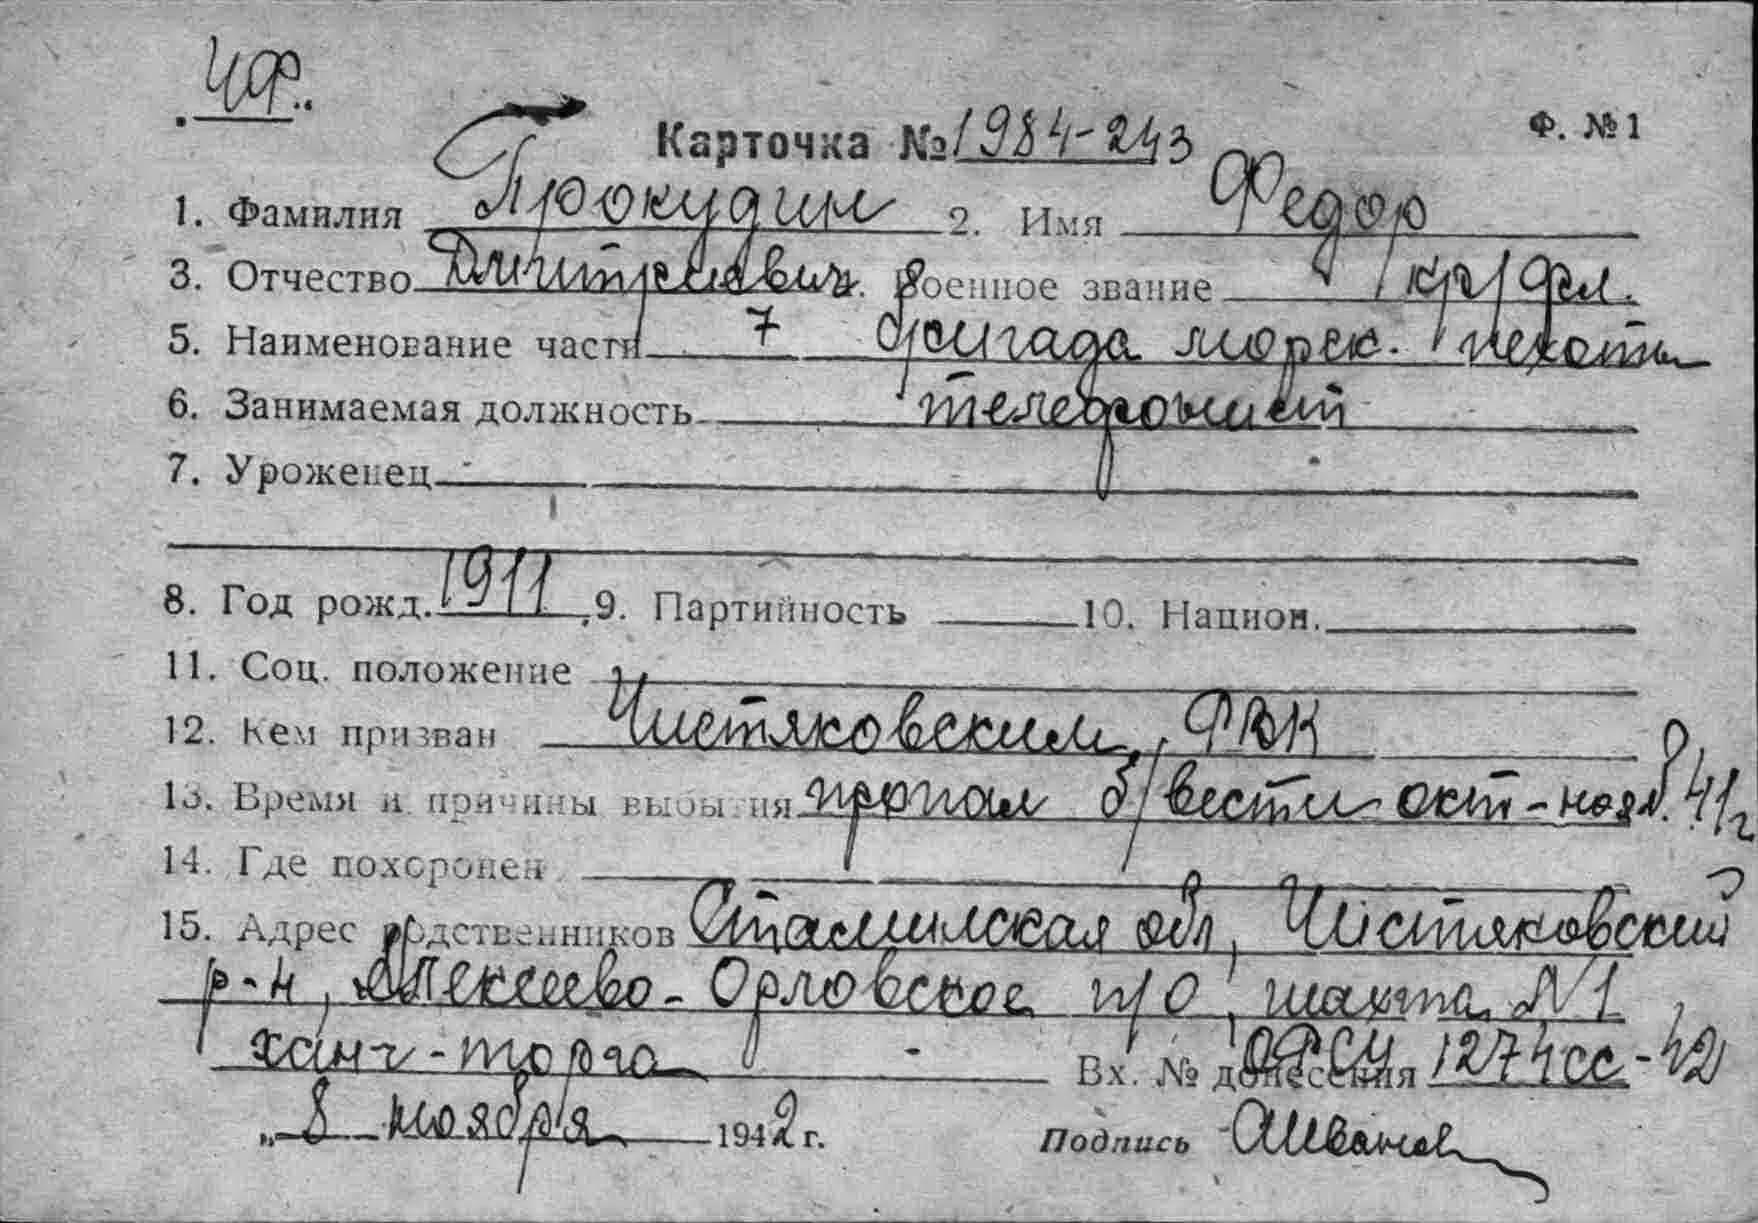 ЧФ.
Карточка № 1984-243 Ф. № 1
1. Фамилия Прокудин 2. Имя Федор
3. Отчество Дмитриевич. Военное звание кр/фл.
5. Наименование части 7 бригада морск. пехоты
6. Занимаемая должность телефонист
7. Уроженец
8. Год рожд. 1911 9. Партийность 10. Национ.
11. Соц. положение
12. Кем призван Чистяковским РВК
13. Время и причины выбытия пропал б/вести окт-нояб. 41 г
14. Где похоронен
15. Адрес родственников Сталинская обл, Чистяковский
р-н, Алексеево-Орловское п/о, шахта N 1
ханч-торга Вх. № донесения ОРСУ 1274сс-42
„ 8 ноября 1942 г. Подпись АИванов